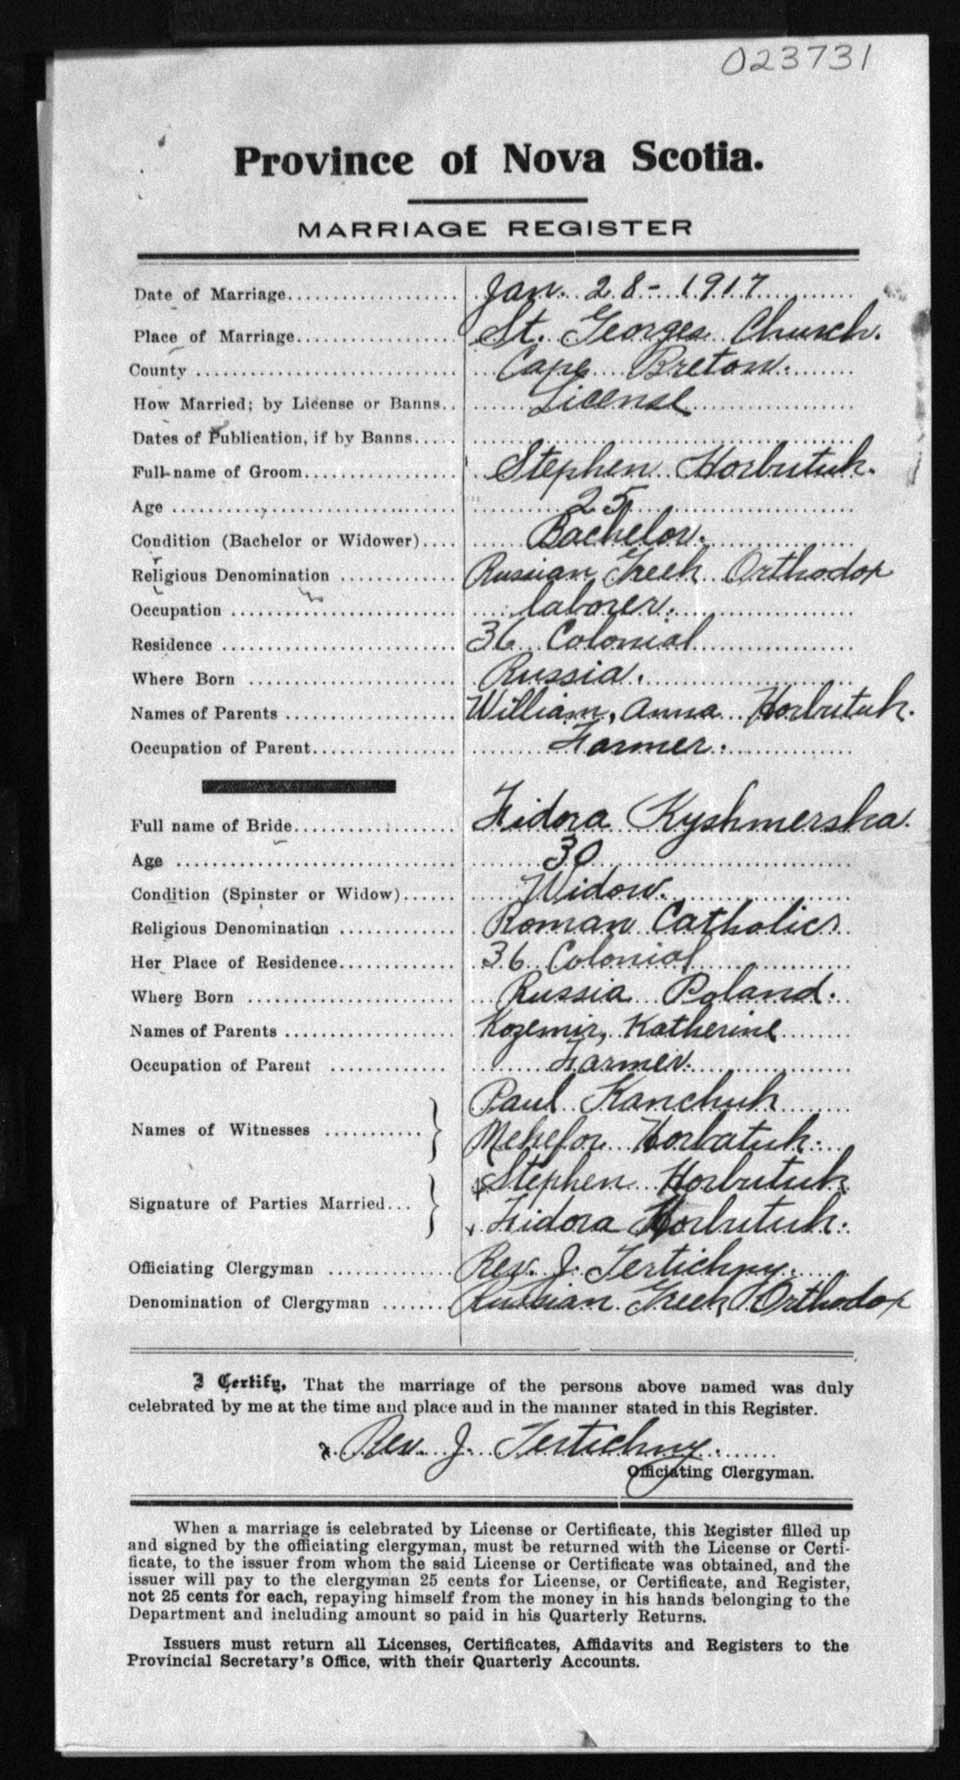 023731
Province of Nova Scotia.
MARRIAGE REGISTER
Date of Marriage Jan. 28- 1917
Place of Marriage St. Georges Church.
County Cape Breton.
How Married; by License or Banns License
Dates of Publication, if by Banns
Full name of Groom Stephen Horbutuk.
Age 25
Condition (Bachelor or Widower) Bachelor.
Religious Denomination Russian Greek Orthodox
Occupation laborer.
Residence 36 Colonial
Where Born Russia.
Names of Parents William, Anna Horbutuk.
Occupation of Parent Farmer.
Full name of Bride Fidora Kyshmerska.
Age 30
Condition (Spinster or Widow) Widow.
Religious Denomination Roman Catholic
Her Place of Residence 36 Colonial
Where Born Russia Poland.
Names of Parents Kozemir, Katherine
Occupation of Parent Farmer.
Paul Kanchuk
Names of Witnesses } Horbatuk.
Stephen Horbutuk
Signature of Parties Married }
Fidora Horbutuk.
Officiating Clergyman Rev. J. Tertichny.
Denomination of Clergyman Russian Greek Orthodox
I Certify, That the marriage of the persons above named was duly
celebrated by me at the time and place and in the manner stated in this Register.
x Rev. J. Tertichny.
Officiating Clergyman.
When a marriage is celebrated by License or Certificate, this Register filled up
and signed by the officiating clergyman, must be returned with the License or Certi-
ficate, to the issuer from whom the said License or Certificate was obtained, and the
issuer will pay to the clergyman 25 cents for License, or Certificate, and Register,
not 25 cents for each, repaying himself from the money in his hands belonging to the
Department and including amount so paid in his Quarterly Returns.
Issuers must return all Licenses, Certificates, Affidavits and Registers to the
Provincial Secretary's Office, with their Quarterly Accounts.